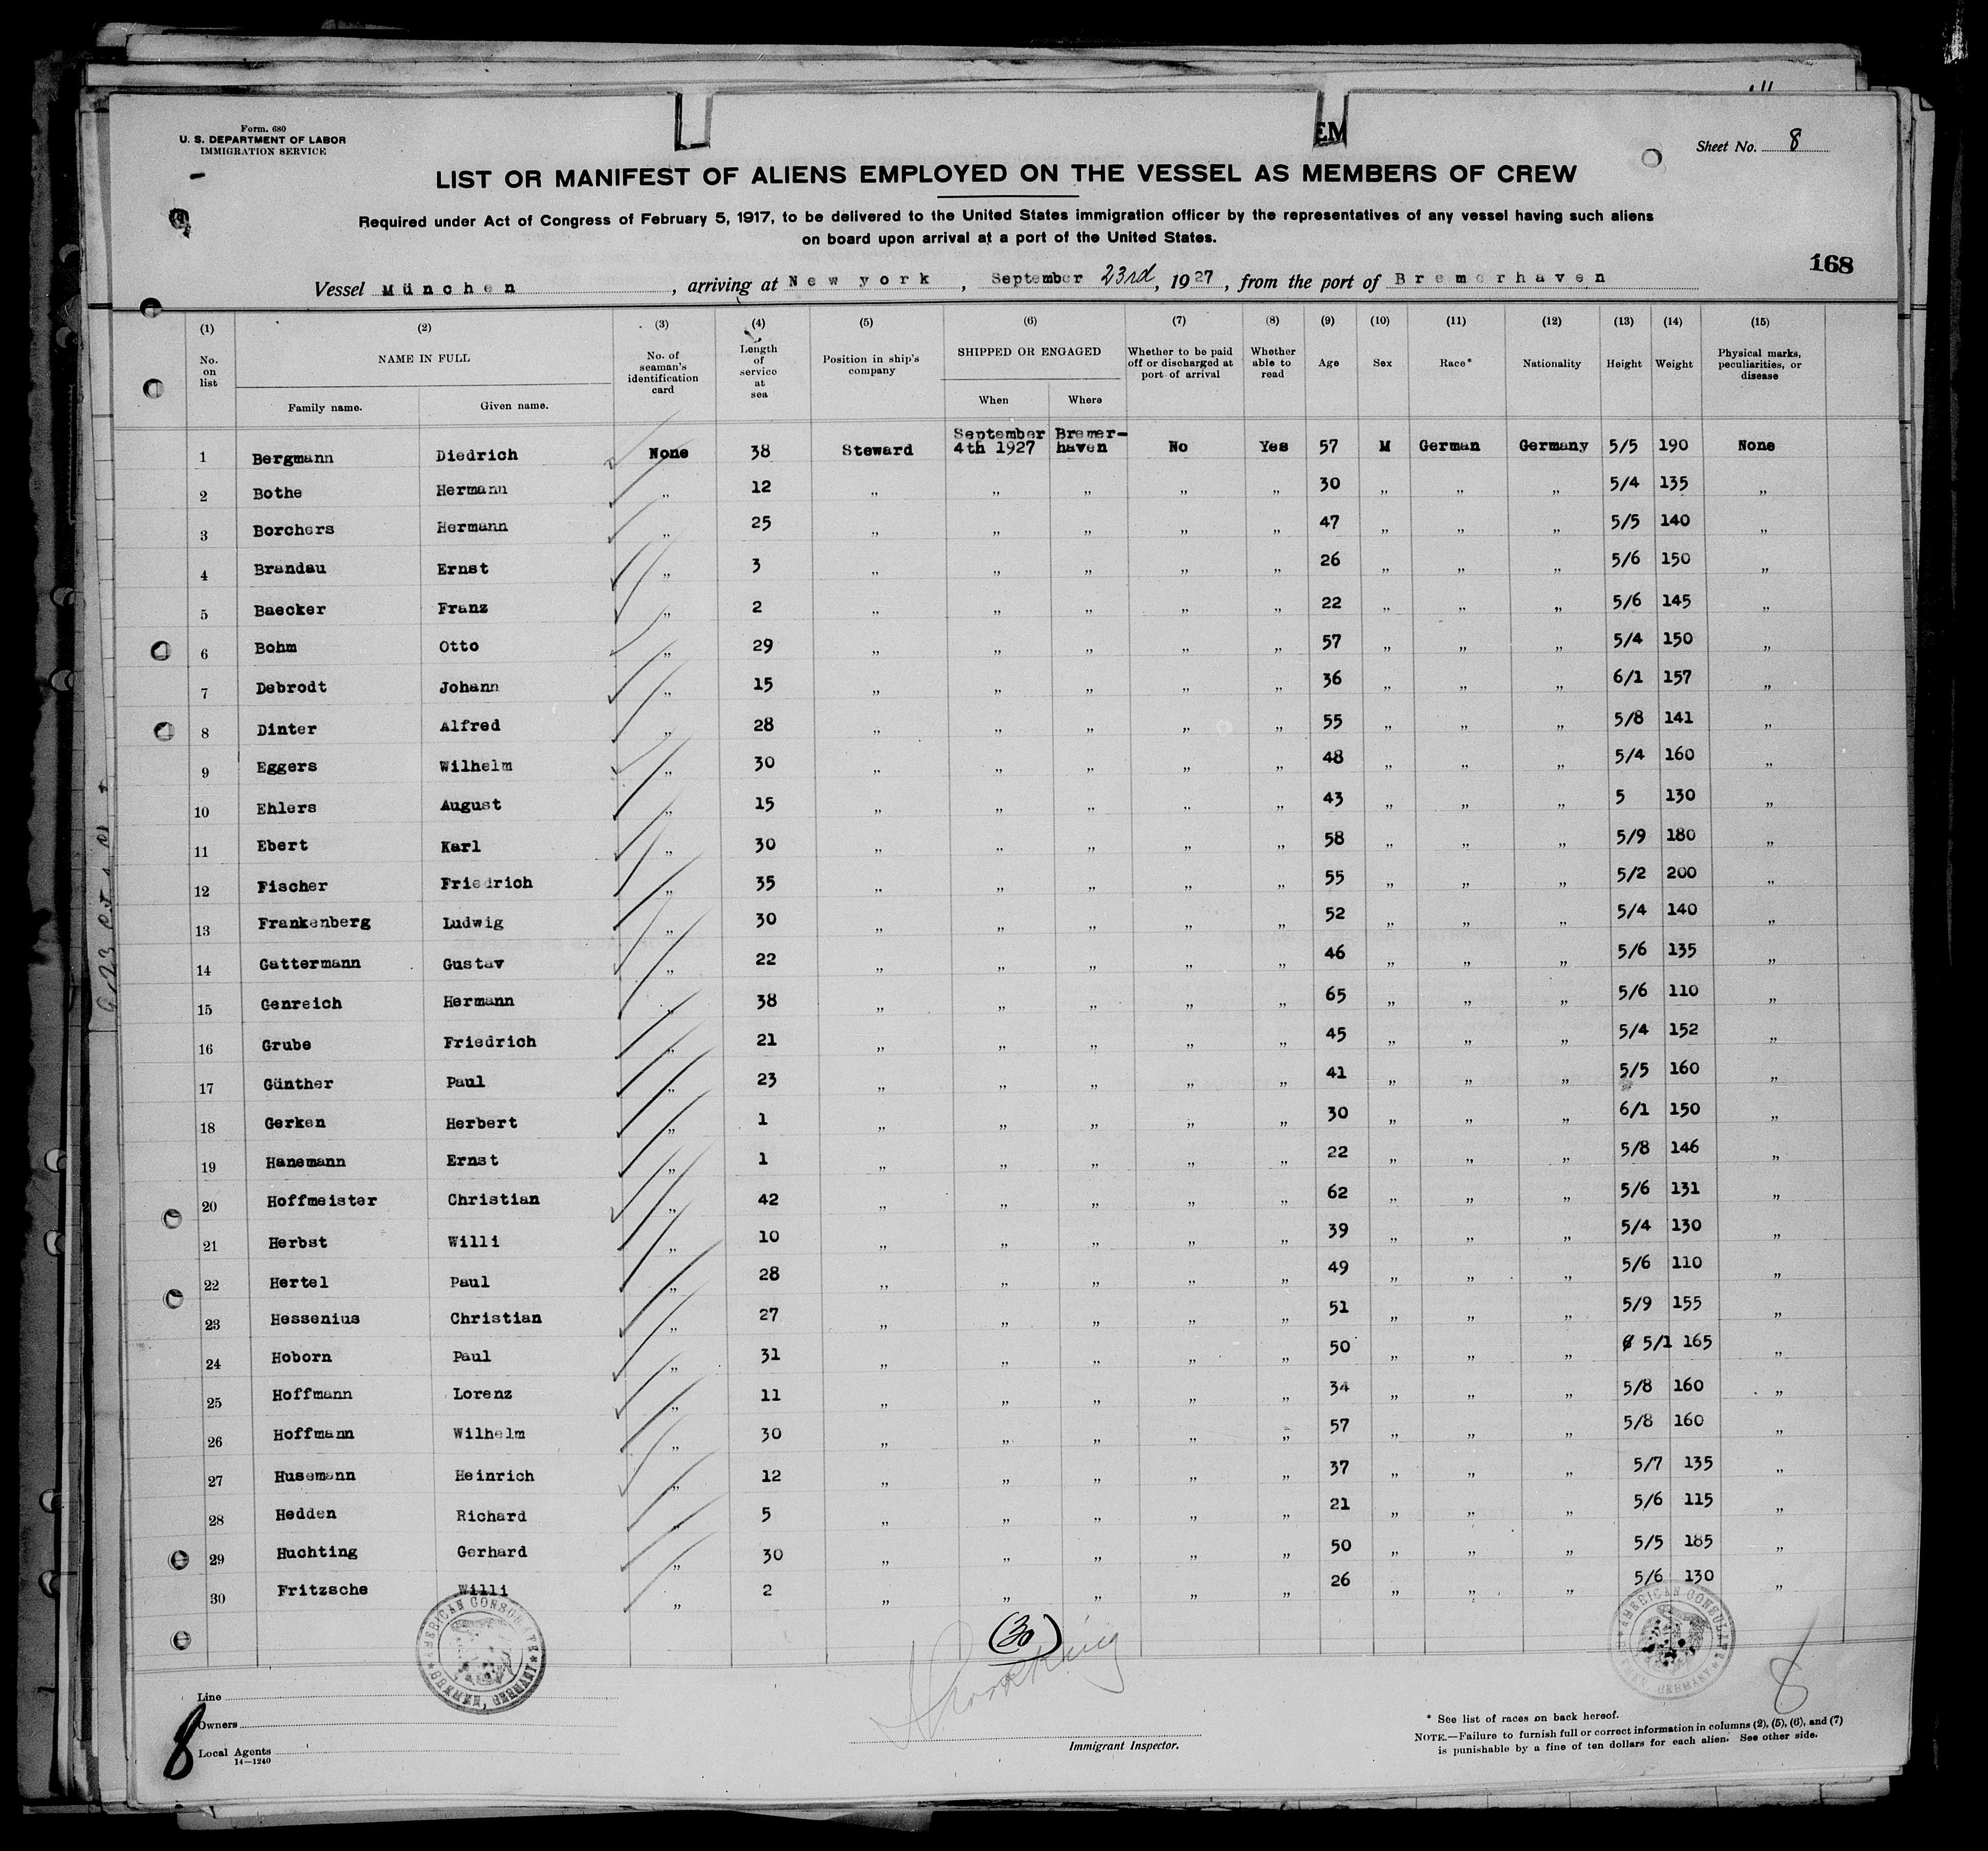 Form. 680
U. S. DEPARTMENT OF LABOR
IMMIGRATION SERVICE
EM
Sheet No. 8
LIST OR MANIFEST OF ALIENS EMPLOYED ON THE VESSEL AS MEMBERS OF CREW
Required under Act of Congress of February 5, 1917, to be delivered to the United States immigration officer by the representatives of any vessel having such aliens
on board upon arrival at a port of the United States.
168
Vessel München, arriving at New york, September 23rd, 1927, from the port of Bremerhaven
(1) (2) (3) (4) (5) (6) (7) (8) (9) (10) (11) (12) (13) (14) (15)
No. on list NAME IN FULL Family name. Given name. No. of seaman's identification card Length of service at sea Position in ship's company SHIPPED OR ENGAGED When Where Whether to be paid off or discharged at port of arrival Whether able to read Age Sex Race* Nationality Height Weight Physical marks, peculiarities, or disease
1 Bergmann Diedrich None 38 Steward September 4th 1927 Bremer-haven No Yes 57 M German Germany 5/5 190 None
2 Bothe Hermann „ 12 „ „ „ „ „ 30 „ „ „ 5/4 135 „
3 Borchers Hermann „ 25 „ „ „ „ „ 47 „ „ „ 5/5 140 „
4 Brandau Ernst „ 3 „ „ „ „ „ 26 „ „ „ 5/6 150 „
5 Baecker Franz „ 2 „ „ „ „ „ 22 „ „ „ 5/6 145 „
6 Bohm Otto „ 29 „ „ „ „ „ 57 „ „ „ 5/4 150 „
7 Debrodt Johann „ 15 „ „ „ „ „ 36 „ „ „ 6/1 157 „
8 Dinter Alfred „ 28 „ „ „ „ „ 55 „ „ „ 5/8 141 „
9 Eggers Wilhelm „ 30 „ „ „ „ „ 48 „ „ „ 5/4 160 „
10 Ehlers August „ 15 „ „ „ „ „ 43 „ „ „ 5 130 „
11 Ebert Karl „ 30 „ „ „ „ „ 58 „ „ „ 5/9 180 „
12 Fischer Friedrich „ 35 „ „ „ „ „ 55 „ „ „ 5/2 200 „
13 Frankenberg Ludwig „ 30 „ „ „ „ „ 52 „ „ „ 5/4 140 „
14 Gattermann Gustav „ 22 „ „ „ „ „ 46 „ „ „ 5/6 135 „
15 Genreich Hermann „ 38 „ „ „ „ „ 65 „ „ „ 5/6 110 „
16 Grube Friedrich „ 21 „ „ „ „ „ 45 „ „ „ 5/4 152 „
17 Günther Paul „ 23 „ „ „ „ „ 41 „ „ „ 5/5 160 „
18 Gerken Herbert „ 1 „ „ „ „ „ 30 „ „ „ 6/1 150 „
19 Hanemann Ernst „ 1 „ „ „ „ „ 22 „ „ „ 5/8 146 „
20 Hoffmeister Christian „ 42 „ „ „ „ „ 62 „ „ „ 5/6 131 „
21 Herbst Willi „ 10 „ „ „ „ „ 39 „ „ „ 5/4 130 „
22 Hertel Paul „ 28 „ „ „ „ „ 49 „ „ „ 5/6 110 „
23 Hessenius Christian „ 27 „ „ „ „ „ 51 „ „ „ 5/9 155 „
24 Hoborn Paul „ 31 „ „ „ „ „ 50 „ „ „ 5/1 165 „
25 Hoffmann Lorenz „ 11 „ „ „ „ „ 34 „ „ „ 5/8 160 „
26 Hoffmann Wilhelm „ 30 „ „ „ „ „ 57 „ „ „ 5/8 160 „
27 Husemann Heinrich „ 12 „ „ „ „ „ 37 „ „ „ 5/7 135 „
28 Hedden Richard „ 5 „ „ „ „ „ 21 „ „ „ 5/6 115 „
29 Huchting Gerhard „ 30 „ „ „ „ „ 50 „ „ „ 5/5 185 „
30 Fritzsche Willi „ 2 „ „ „ „ „ 26 „ „ „ 5/6 130 „
(30)
AMERICAN CONSULATE BREMEN, GERMANY
AMERICAN CONSULATE BREMEN, GERMANY
8
Line
Owners
Local Agents
14—1240
8
Immigrant Inspector.
* See list of races on back hereof.
NOTE.—Failure to furnish full or correct information in columns (2), (5), (6), and (7)
is punishable by a fine of ten dollars for each alien. See other side.